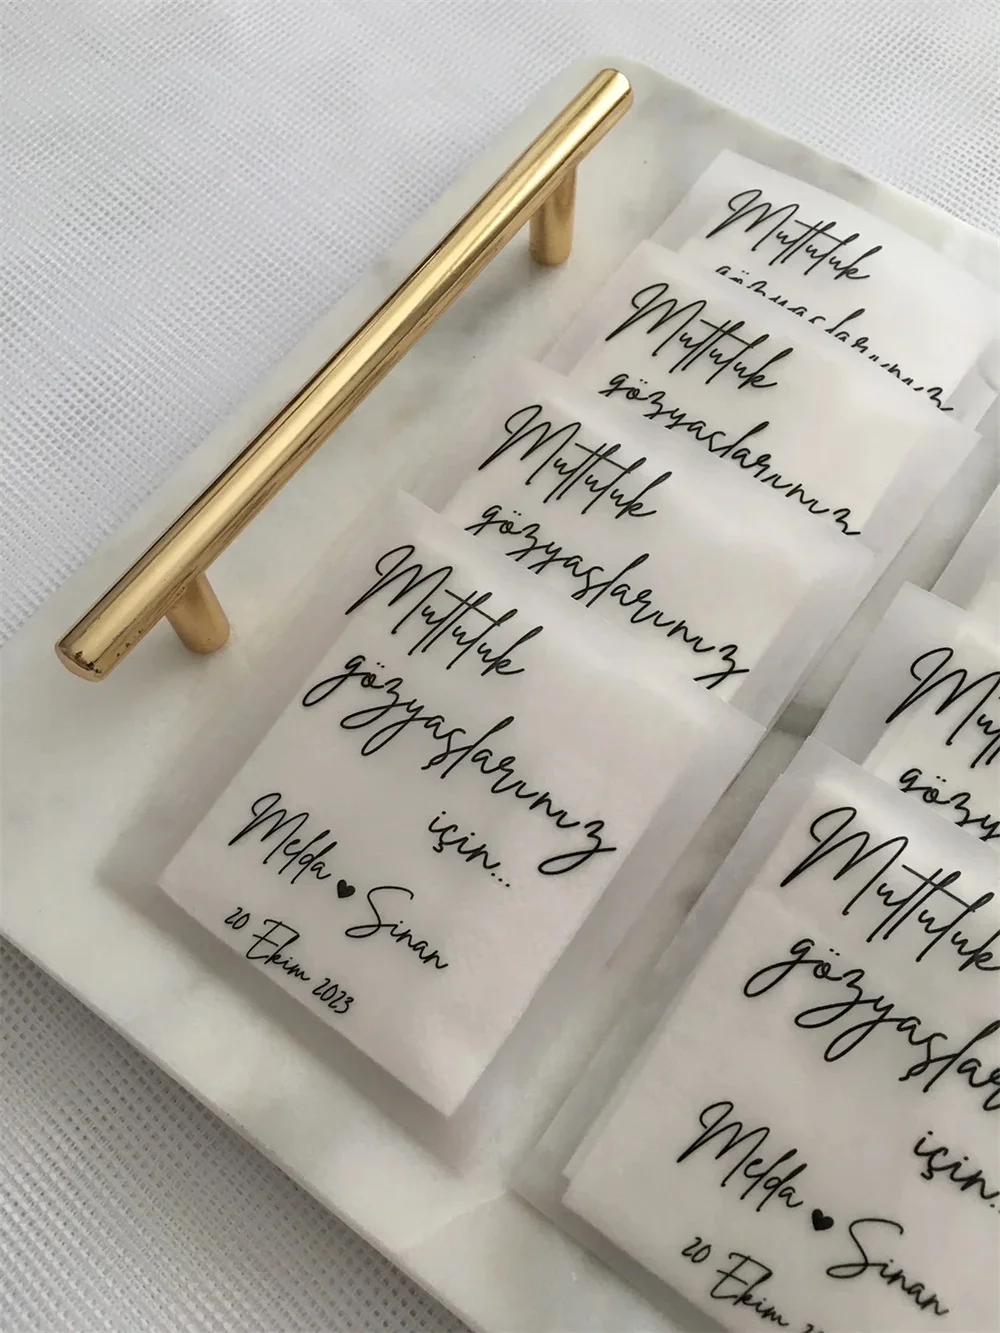 Mutluluk
gözyaşlarınız
Mutluluk
gözyaşlarınız
Mutluluk
gözyaşlarınız
Mutluluk
gözyaşlarınız
için...
Melda ♥ Sinan
20 Ekim 2023
gözy
Mutluluk
gözyaşlar
için...
Melda ♥ Sinan
20 Ekim